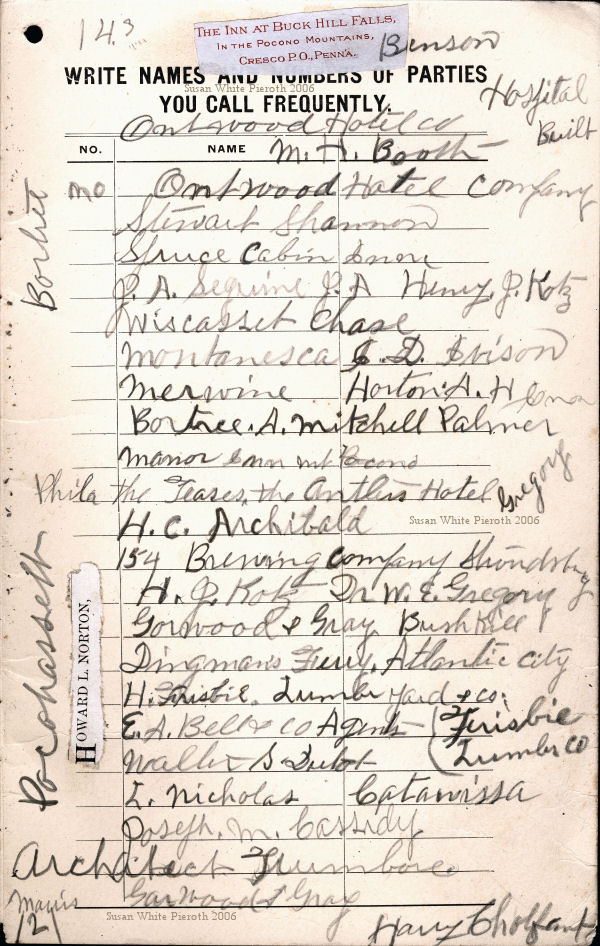 14.3
THE INN AT BUCK HILL FALLS,
IN THE POCONO MOUNTAINS,
CRESCO P.O., PENN'A.
Benson
WRITE NAMES AND NUMBERS OF PARTIES
Susan White Pieroth 2006
YOU CALL FREQUENTLY.
Hospital
Built
Ontwood Hotel Co
NO. NAME M. H. Booth
no Ontwood Hotel Company
Stewart Shannon
Spruce Cabin Inn
J. A. Seguine J. A Henry J. Kotz
Wiscasset Chase
Montanesca I. D. Ivison
Merwine Horton A. H
Bortree. A. Mitchell Palmer
Manor Inn mt Pocono
Phila the Teases, the Antlers Hotel Gregory
H. C. Archibald
Susan White Pieroth 2006
154 Brewing Company
H. J. Kotz Dr W. E. Gregory
Gorwood & Gray Bushkill
Dingman's Ferry, Atlantic City
H. Frisbie. Lumber yard & co.
E. A. Bell & Co Agents (Frisbie
Lumber Co
S
L. Nicholas Catawissa
Joseph. M. Cassidy
Architect Trumbore
Garwood & Gray
12
Susan White Pieroth 2006
Harry
Pocohasseth
HOWARD L. NORTON,